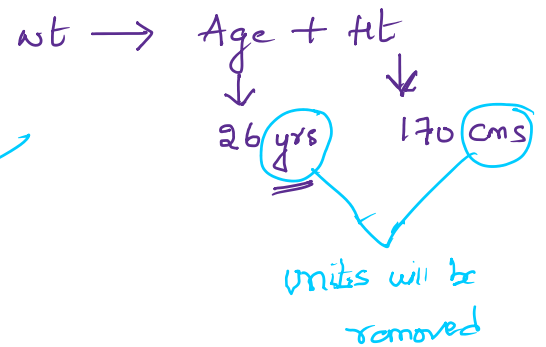 wt → Age + Ht
26 yrs 170 cms
units will be
removed